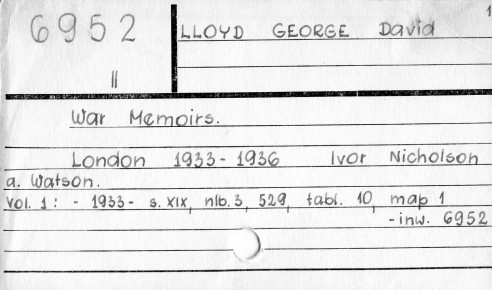 1
6952 LLOYD GEORGE David
II
War Memoirs.
London 1933-1936 Ivor Nicholson
a. Watson.
Vol. 1: - 1933- s. XIX, nlb. 3, 529, tabl. 10, map 1
-inw. 6952